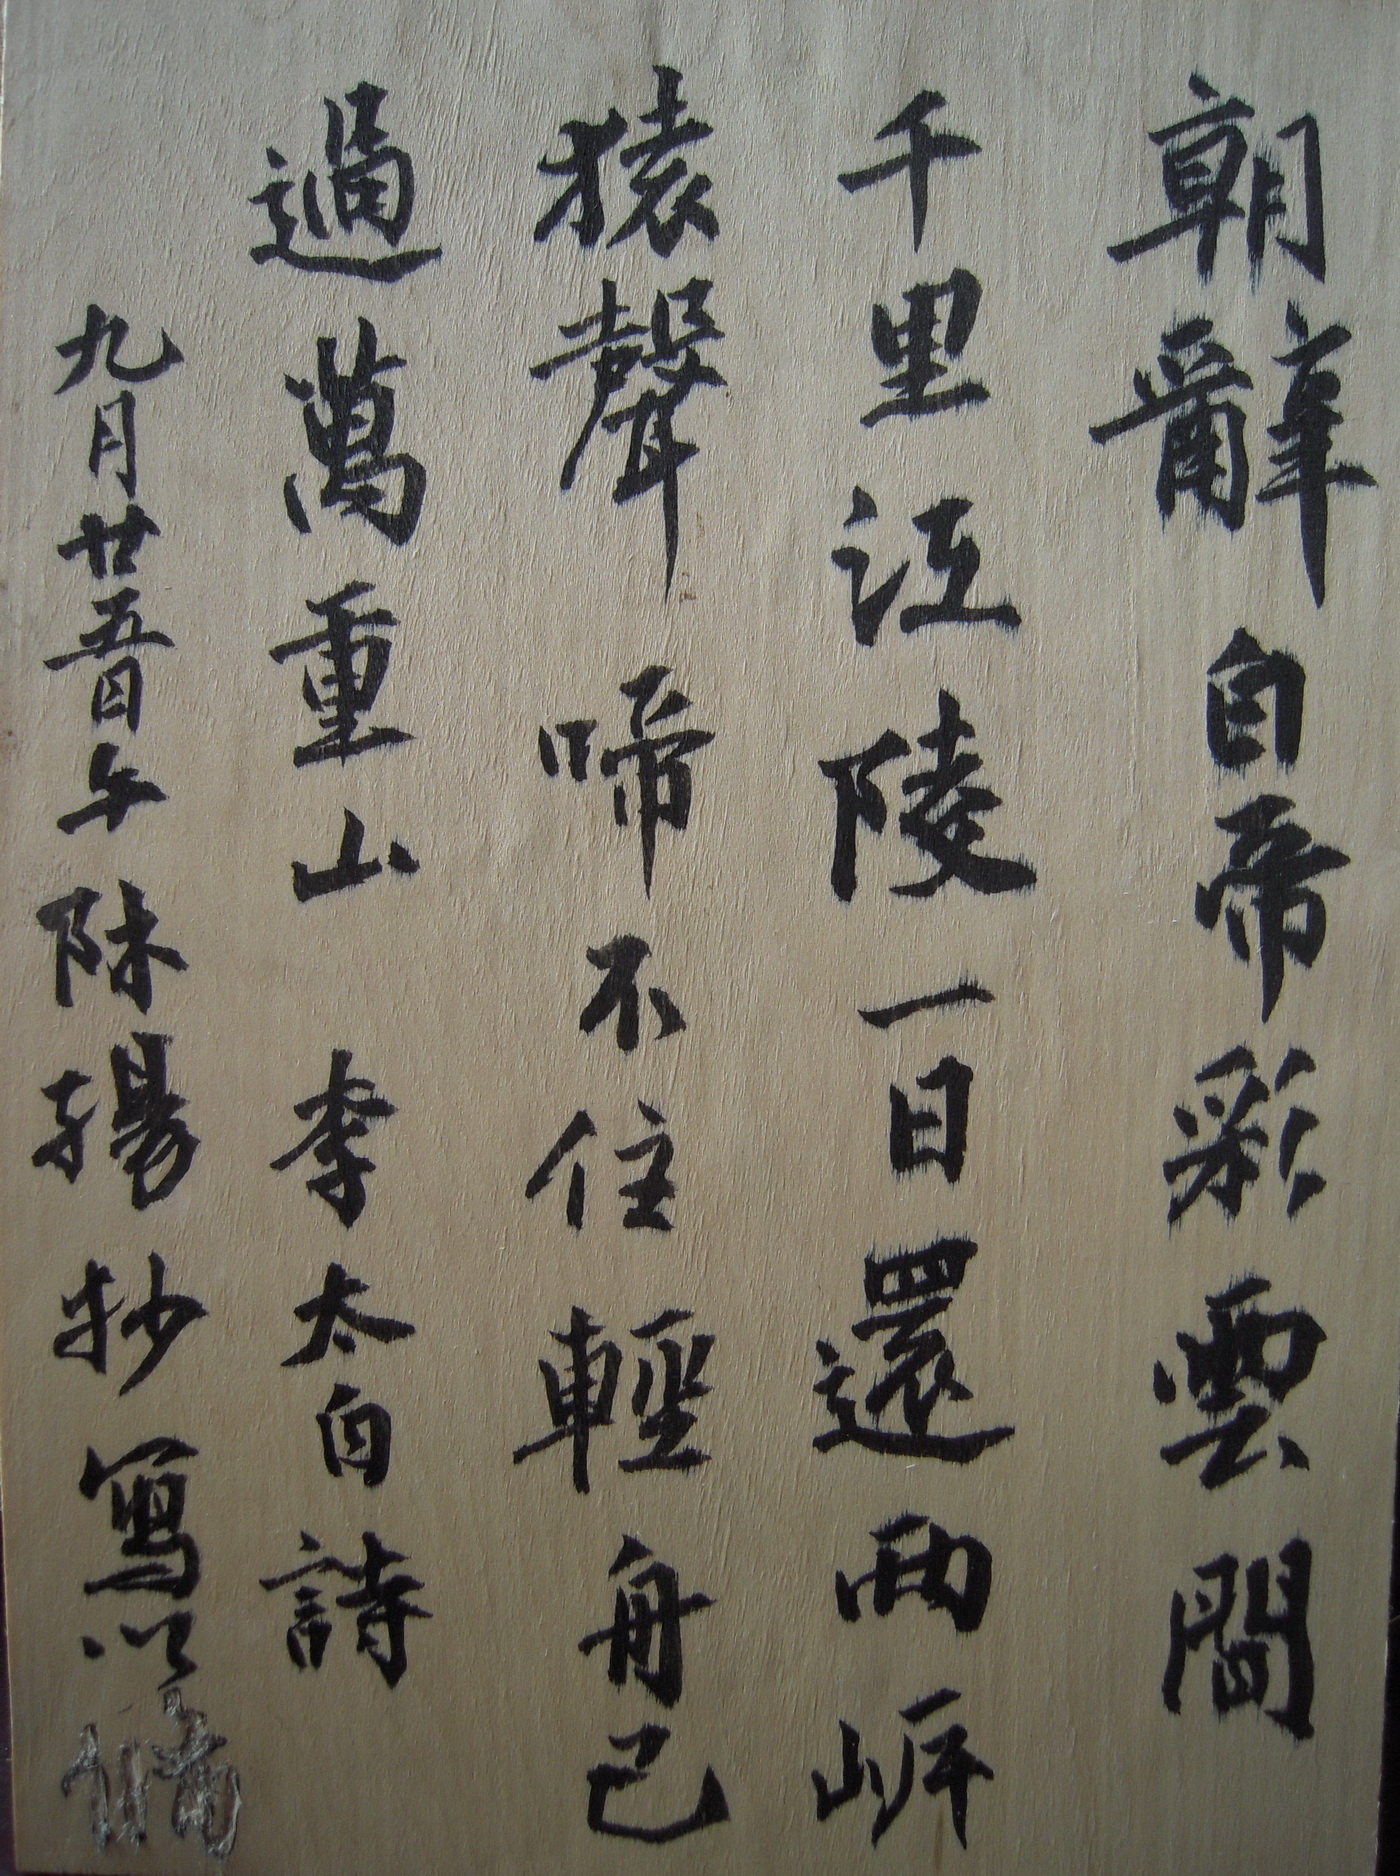 朝辭白帝彩雲間
千里江陵一日還兩岍
猿聲啼不住輕舟已
過萬重山 李太白詩
九月廿五日午陳揚抄寫以備